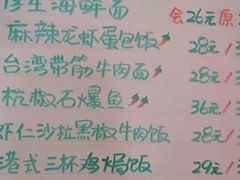 厚生海鲜面 会26元/原
麻辣龙虾蛋包饭 28元/
台湾带筋牛肉面 28元/
杭椒石爆鱼 36元/
虾仁沙拉黑椒牛肉饭 28元/
港式三杯鸡焗饭 29元/